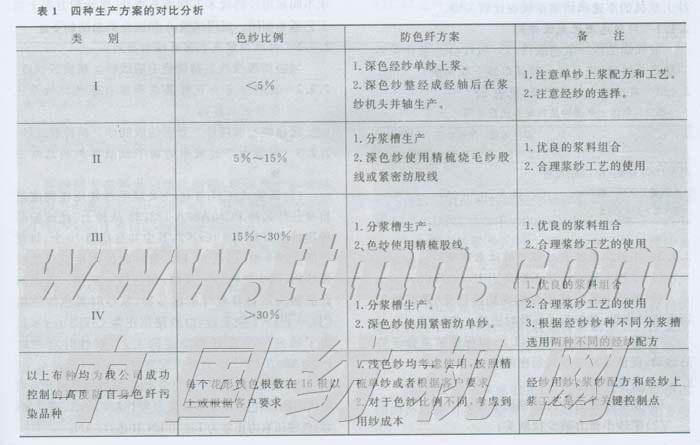 表 1 四种生产方案的对比分析
类 别 色纱比例 防色纤方案 备 注
1.深色经纱单纱上浆。
I <5% 2.深色纱整经成经轴后在浆 1.注意单纱上浆配方和工艺。
纱机头并轴生产。 2.注意经纱的选择。
1.分浆槽生产
II 5%~15% 2.深色纱使用精梳烧毛纱股 1.优良的浆料组合
线或紧密纺股线 2.合理浆纱工艺的使用
III 15%~30% 1.分浆槽生产。 1.优良的浆料组合
2.色纱使用精梳股线。 2.合理浆纱工艺的使用
1.优良的浆料组合
IV >30% 1.分浆槽生产。 2.合理浆纱工艺的使用
2.深色纱使用紧密纺单纱。 3.根据经纱纱种不同分浆槽
选用两种不同的经纱配方
1.浅色纱均考虑使用,按照精
以上布种均为我公司成功 每个花形浅色根数在 16 根以 梳单纱或者根据客户要求 经纱用纱、浆纱配方和经纱上
控制的高度防自身色纤污 上或根据客户要求 2.对于色纱比例不同,考虑到 浆工艺是三个关键控制点
染品种 用纱成本
www.ttmn.com
中国纺机网